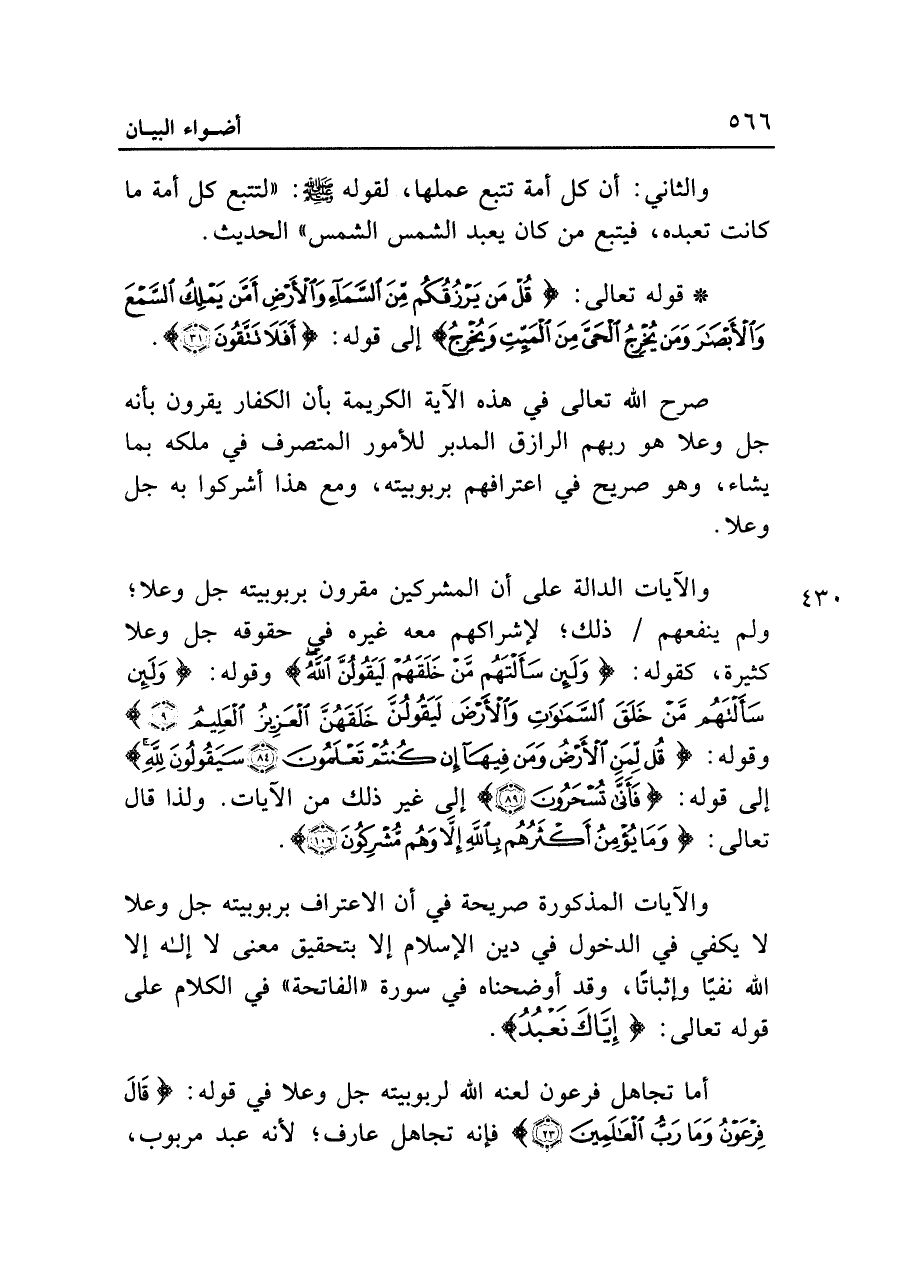 ٥٦٦ أضواء البيان
والثاني: أن كل أمة تتبع عملها، لقوله ﷺ: «لتتبع كل أمة ما
كانت تعبده، فيتبع من كان يعبد الشمس الشمس» الحديث.
* قوله تعالى: ﴿ قُلْ مَن يَرْزُقُكُم مِّنَ ٱلسَّمَآءِ وَٱلْأَرْضِ أَمَّن يَمْلِكُ ٱلسَّمْعَ
وَٱلْأَبْصَـٰرَ وَمَن يُخْرِجُ ٱلْحَىَّ مِنَ ٱلْمَيِّتِ وَيُخْرِجُ﴾ إلى قوله: ﴿ أَفَلَا تَتَّقُونَ ٣١﴾.
صرح الله تعالى في هذه الآية الكريمة بأن الكفار يقرون بأنه
جل وعلا هو ربهم الرازق المدبر للأمور المتصرف في ملكه بما
يشاء، وهو صريح في اعترافهم بربوبيته، ومع هذا أشركوا به جل
وعلا.
والآيات الدالة على أن المشركين مقرون بربوبيته جل وعلا؛ ٤٣٠
ولم ينفعهم / ذلك؛ لإشراكهم معه غيره في حقوقه جل وعلا
كثيرة، كقوله: ﴿ وَلَئِن سَأَلْتَهُم مَّنْ خَلَقَهُمْ لَيَقُولُنَّ ٱللَّهُ﴾ وقوله: ﴿ وَلَئِن
سَأَلْتَهُم مَّنْ خَلَقَ ٱلسَّمَـٰوَٰتِ وَٱلْأَرْضَ لَيَقُولُنَّ خَلَقَهُنَّ ٱلْعَزِيزُ ٱلْعَلِيمُ ٩ ﴾
وقوله: ﴿ قُل لِّمَنِ ٱلْأَرْضُ وَمَن فِيهَآ إِن كُنتُمْ تَعْلَمُونَ ٨٤ سَيَقُولُونَ لِلَّهِۚ﴾
إلى قوله: ﴿ فَأَنَّىٰ تُسْحَرُونَ ٨٩﴾ إلى غير ذلك من الآيات. ولذا قال
تعالى: ﴿ وَمَا يُؤْمِنُ أَكْثَرُهُم بِٱللَّهِ إِلَّا وَهُم مُّشْرِكُونَ ١٠٦﴾.
والآيات المذكورة صريحة في أن الاعتراف بربوبيته جل وعلا
لا يكفي في الدخول في دين الإسلام إلا بتحقيق معنى لا إلـٰه إلا
الله نفيًا وإثباتًا، وقد أوضحناه في سورة «الفاتحة» في الكلام على
قوله تعالى: ﴿ إِيَّاكَ نَعْبُدُ﴾.
أما تجاهل فرعون لعنه الله لربوبيته جل وعلا في قوله: ﴿ قَالَ
فِرْعَوْنُ وَمَا رَبُّ ٱلْعَـٰلَمِينَ ٢٣﴾ فإنه تجاهل عارف؛ لأنه عبد مربوب،